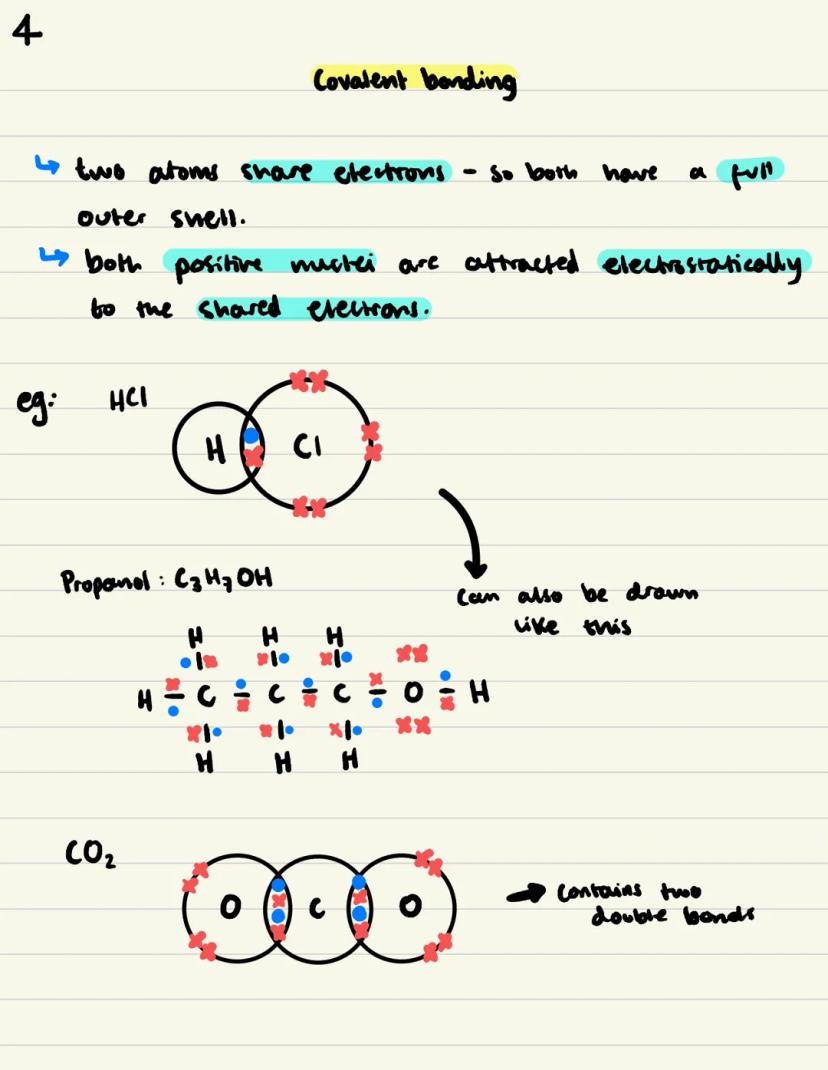 4
Covalent bonding
↳ two atoms share electrons - so both have a full
outer shell.
↳ both positive nuclei are attracted electrostatically
to the shared electrons.
eg: HCl
H Cl
Propanol : C₃H₇OH
can also be drawn
like this
H H H
H - C - C - C - O - H
H H H
CO₂
O C O
→ contains two
double bonds